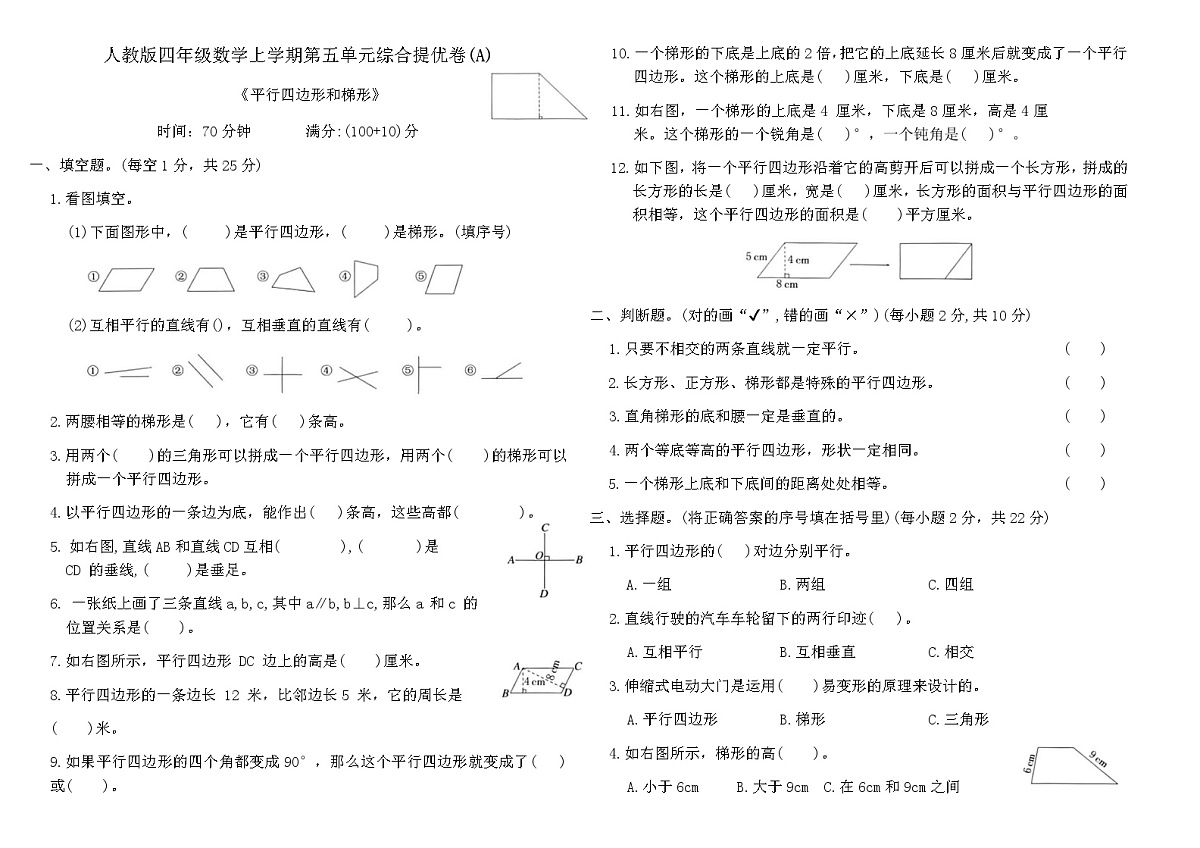 人教版四年级数学上学期第五单元综合提优卷(A)
《平行四边形和梯形》
时间: 70分钟 满分:(100+10)分
一、填空题。(每空1分，共25分)
1.看图填空。
(1)下面图形中，( )是平行四边形，( )是梯形。(填序号)
① ② ③ ④ ⑤
(2)互相平行的直线有()，互相垂直的直线有( )。
① ② ③ ④ ⑤ ⑥
2.两腰相等的梯形是( )，它有( )条高。
3.用两个( )的三角形可以拼成一个平行四边形，用两个( )的梯形可以
拼成一个平行四边形。
4.以平行四边形的一条边为底，能作出( )条高，这些高都( )。
5. 如右图,直线AB和直线CD互相( ),( )是
CD 的垂线,( )是垂足。
C
A O B
D
6. 一张纸上画了三条直线a,b,c,其中a∥b,b⊥c,那么a 和c 的
位置关系是( )。
7.如右图所示，平行四边形 DC 边上的高是( )厘米。
A C
4 cm 8 cm
B D
8.平行四边形的一条边长 12 米，比邻边长5 米，它的周长是
( )米。
9.如果平行四边形的四个角都变成90°，那么这个平行四边形就变成了( )
或( )。
10.一个梯形的下底是上底的2倍,把它的上底延长8厘米后就变成了一个平行
四边形。这个梯形的上底是( )厘米，下底是( )厘米。
11.如右图，一个梯形的上底是4 厘米，下底是8厘米，高是4厘
米。这个梯形的一个锐角是( )°，一个钝角是( )°。
12.如下图，将一个平行四边形沿着它的高剪开后可以拼成一个长方形，拼成的
长方形的长是( )厘米，宽是( )厘米，长方形的面积与平行四边形的面
积相等，这个平行四边形的面积是( )平方厘米。
5 cm 4 cm
8 cm
二、判断题。(对的画“✓”,错的画“×”)(每小题2分,共10分)
1.只要不相交的两条直线就一定平行。 ( )
2.长方形、正方形、梯形都是特殊的平行四边形。 ( )
3.直角梯形的底和腰一定是垂直的。 ( )
4.两个等底等高的平行四边形，形状一定相同。 ( )
5.一个梯形上底和下底间的距离处处相等。 ( )
三、选择题。(将正确答案的序号填在括号里)(每小题2分，共22分)
1.平行四边形的( )对边分别平行。
A.一组 B.两组 C.四组
2.直线行驶的汽车车轮留下的两行印迹( )。
A.互相平行 B.互相垂直 C.相交
3.伸缩式电动大门是运用( )易变形的原理来设计的。
A.平行四边形 B.梯形 C.三角形
4.如右图所示，梯形的高( )。
6 cm 9 cm
A.小于6cm B.大于9cm C.在6cm和9cm之间